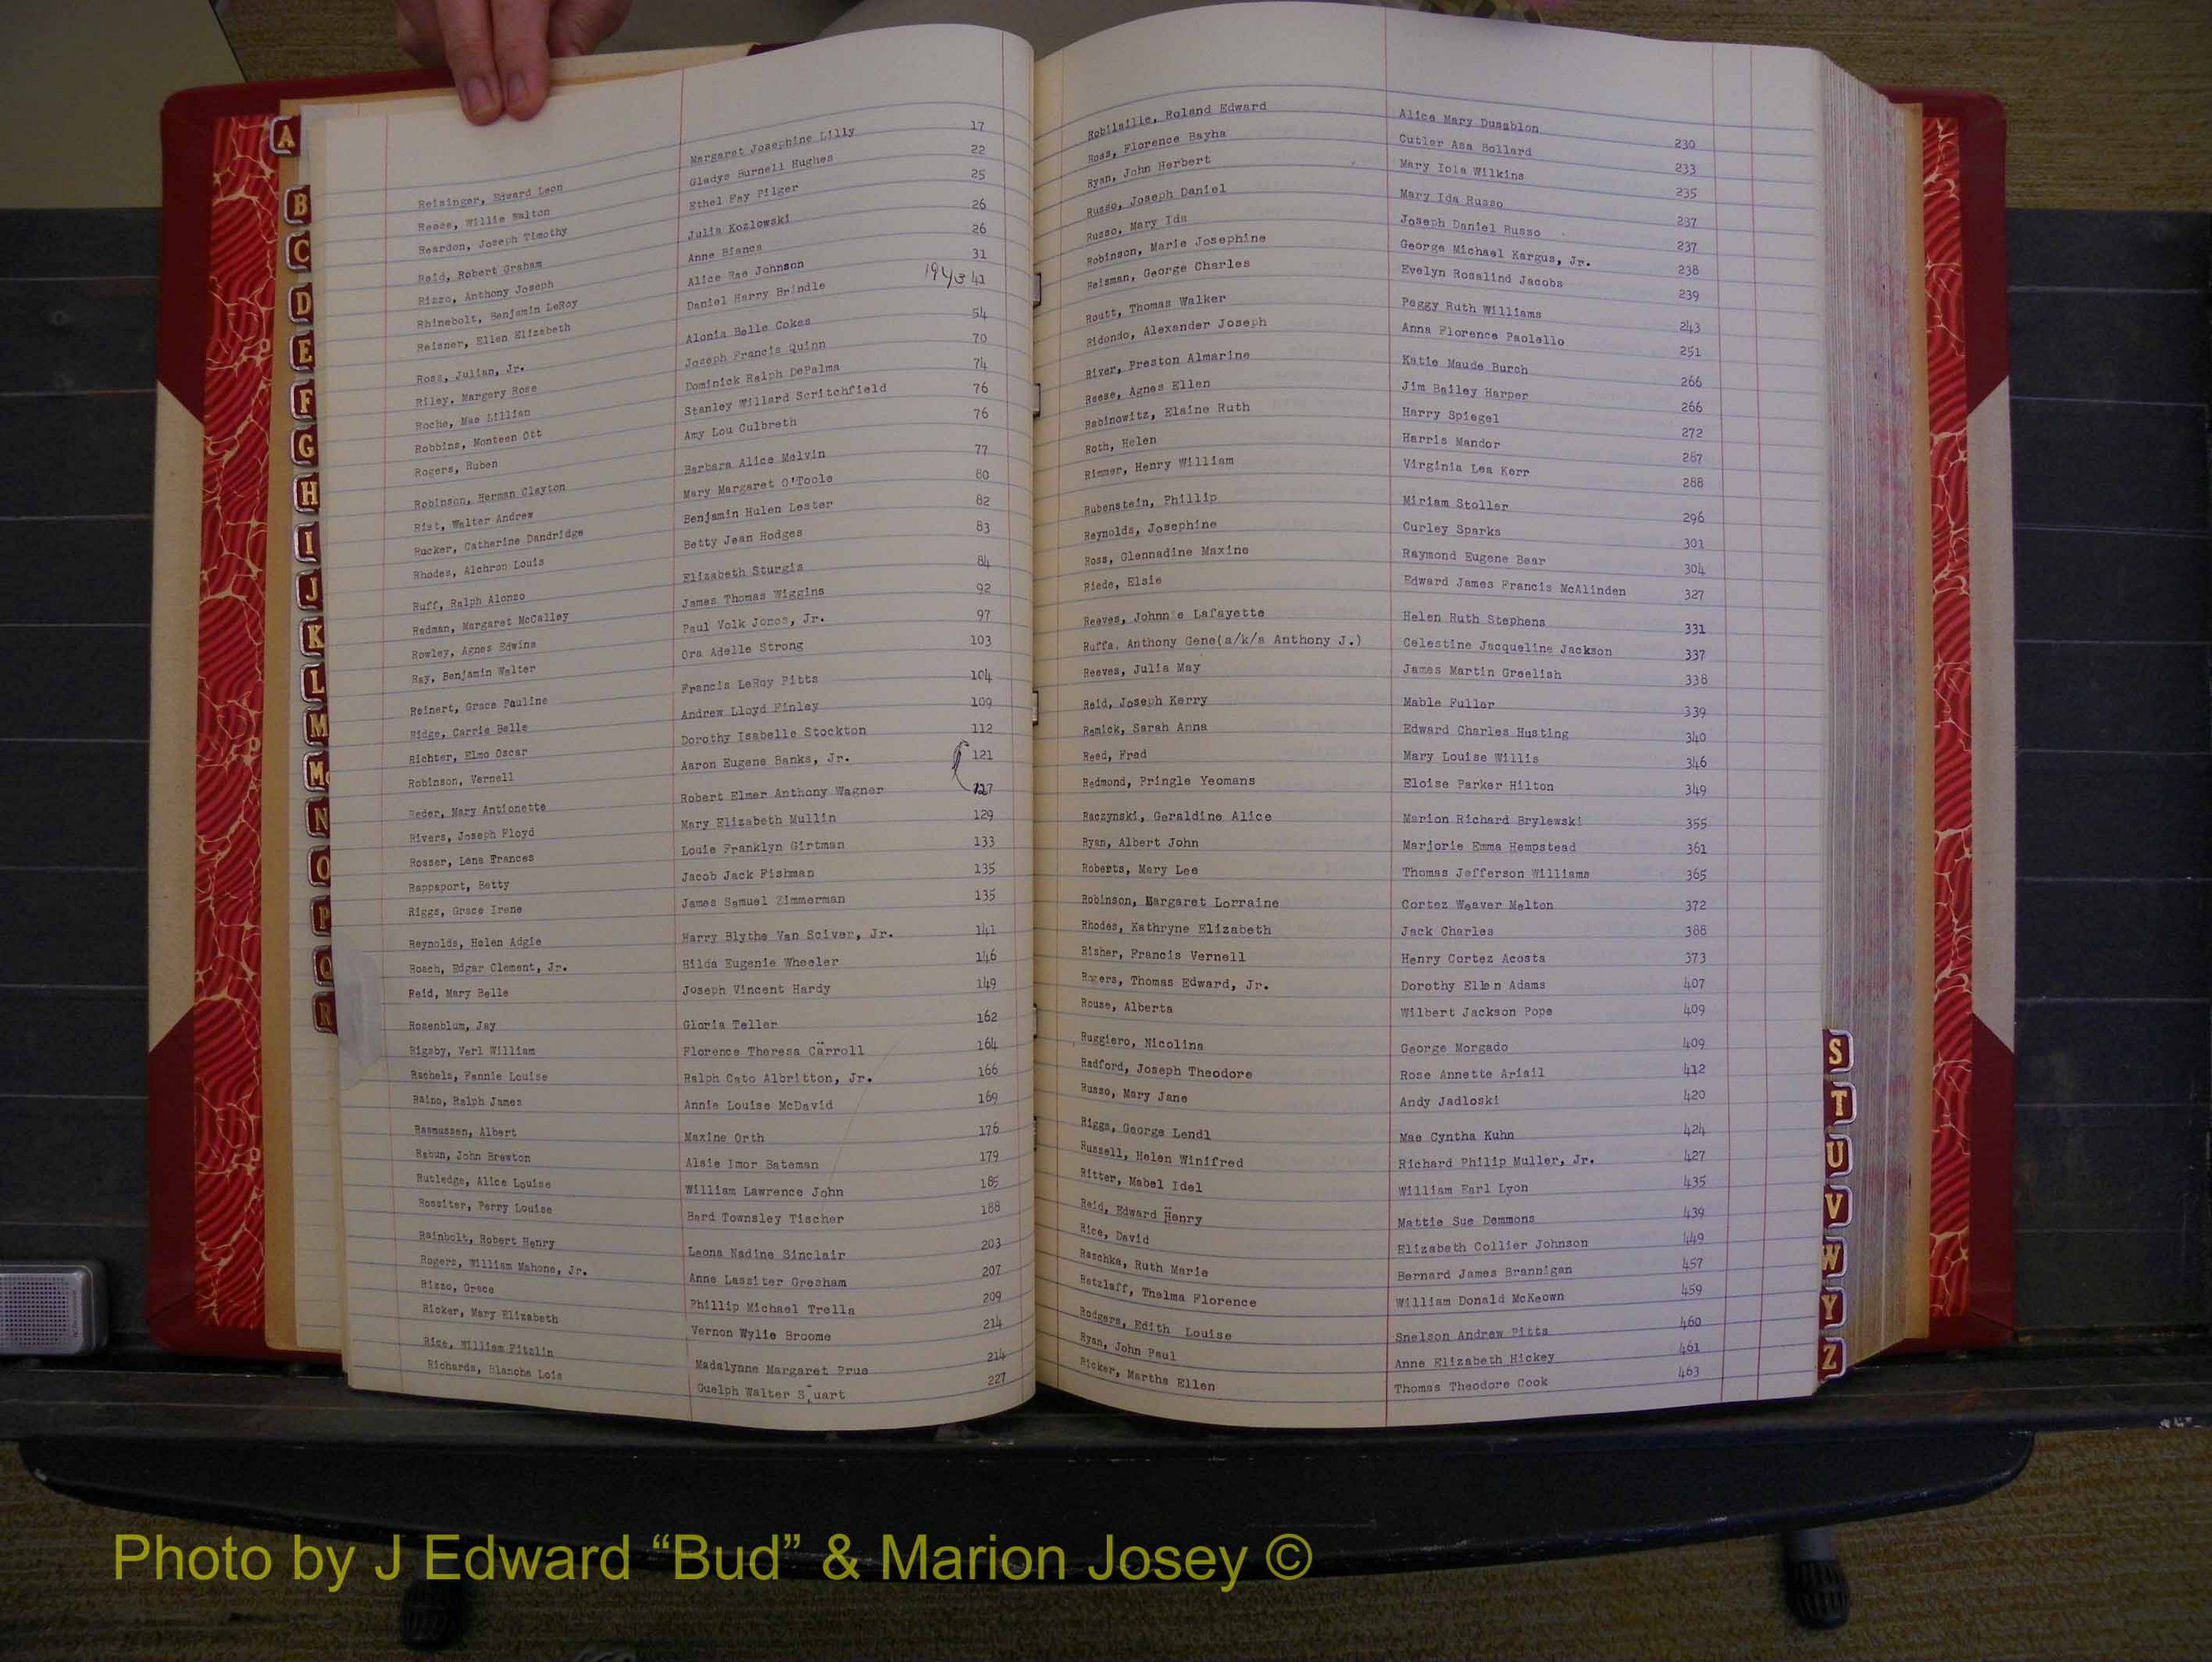 A
B
C
D
E
F
G
H
I
J
K
L
M
Mc
N
O
P
Q
R
Reisinger, Edward Leon Margaret Josephine Lilly 17
Reese, Willie Walton Gladys Burnell Hughes 22
Reardon, Joseph Timothy Ethel Fay Pilger 25
Reid, Robert Graham Julia Kozlowski 26
Rizzo, Anthony Joseph Anne Bianca 26
Rhinebolt, Benjamin LeRoy Alice Rae Johnson 31
Reisner, Ellen Elizabeth Daniel Harry Brindle 1943 41
Ross, Julian, Jr. Alonia Belle Cokes 54
Riley, Margery Rose Joseph Francis Quinn 70
Roche, Mae Lillian Dominick Ralph DePalma 74
Robbins, Monteen Ott Stanley Willard Scritchfield 76
Rogers, Ruben Amy Lou Culbreth 76
Robinson, Herman Clayton Barbara Alice Melvin 77
Rist, Walter Andrew Mary Margaret O'Toole 80
Rucker, Catherine Dandridge Benjamin Hulen Lester 82
Rhodes, Alchron Louis Betty Jean Hodges 83
Ruff, Ralph Alonzo Elizabeth Sturgis 84
Redman, Margaret McCalley James Thomas Wiggins 92
Rowley, Agnes Edwina Paul Volk Jones, Jr. 97
Ray, Benjamin Walter Ora Adelle Strong 103
Reinert, Grace Pauline Francis LeRoy Pitts 104
Ridge, Carrie Belle Andrew Lloyd Finley 109
Richter, Elmo Oscar Dorothy Isabelle Stockton 112
Robinson, Vernell Aaron Eugene Banks, Jr. 121
Reder, Mary Antionette Robert Elmer Anthony Wagner 127
Rivers, Joseph Floyd Mary Elizabeth Mullin 129
Rosser, Lena Frances Louie Franklyn Girtman 133
Rappaport, Betty Jacob Jack Fishman 135
Riggs, Grace Irene James Samuel Zimmerman 135
Reynolds, Helen Adgie Harry Blythe Van Sciver, Jr. 141
Roach, Edgar Clement, Jr. Hilda Eugenie Wheeler 146
Reid, Mary Belle Joseph Vincent Hardy 149
Rosenblum, Jay Gloria Teller 162
Rigsby, Verl William Florence Theresa Carroll 164
Rachels, Fannie Louise Ralph Cato Albritton, Jr. 166
Raino, Ralph James Annie Louise McDavid 169
Rasmussen, Albert Maxine Orth 176
Rabun, John Brewton Alsie Imor Bateman 179
Rutledge, Alice Louise William Lawrence John 185
Rossiter, Perry Louise Bard Townsley Tischer 188
Rainbolt, Robert Henry Leona Nadine Sinclair 203
Rogers, William Mahone, Jr. Anne Lassiter Gresham 207
Rizzo, Grace Phillip Michael Trella 209
Ricker, Mary Elizabeth Vernon Wylie Broome 214
Rice, William Fitzlin Madalynne Margaret Prue 214
Richards, Blanche Lois Guelph Walter S,uart 227
Robilaille, Roland Edward Alice Mary Dusablon 230
Ross, Florence Bayha Cutler Asa Bollard 233
Ryan, John Herbert Mary Iola Wilkins 235
Russo, Joseph Daniel Mary Ida Russo 237
Russo, Mary Ida Joseph Daniel Russo 237
Robinson, Marie Josephine George Michael Kargus, Jr. 238
Reisman, George Charles Evelyn Rosalind Jacobs 239
Routt, Thomas Walker Peggy Ruth Williams 243
Ridondo, Alexander Joseph Anna Florence Paolello 251
River, Preston Almarine Katie Maude Burch 266
Reese, Agnes Ellen Jim Bailey Harper 266
Rabinowitz, Elaine Ruth Harry Spiegel 272
Roth, Helen Harris Mandor 287
Rimmer, Henry William Virginia Lea Kerr 288
Rubenstein, Phillip Miriam Stoller 296
Reynolds, Josephine Curley Sparks 301
Ross, Glennadine Maxine Raymond Eugene Bear 304
Riede, Elsie Edward James Francis McAlinden 327
Reeves, Johnn e Lafayette Helen Ruth Stephens 331
Ruffa, Anthony Gene(a/k/a Anthony J.) Celestine Jacqueline Jackson 337
Reeves, Julia May James Martin Greelish 338
Reid, Joseph Kerry Mable Fuller 339
Remick, Sarah Anna Edward Charles Husting 340
Reed, Fred Mary Louise Willis 346
Redmond, Pringle Yeomans Eloise Parker Hilton 349
Raczynski, Geraldine Alice Marion Richard Brylewski 355
Ryan, Albert John Marjorie Emma Hempstead 361
Roberts, Mary Lee Thomas Jefferson Williams 365
Robinson, Margaret Lorraine Cortez Weaver Melton 372
Rhodes, Kathryne Elizabeth Jack Charles 388
Risher, Francis Vernell Henry Cortez Acosta 373
Rogers, Thomas Edward, Jr. Dorothy Ellen Adams 407
Rouse, Alberta Wilbert Jackson Pope 409
Ruggiero, Nicolina George Morgado 409
Radford, Joseph Theodore Rose Annette Ariail 412
Russo, Mary Jane Andy Jadloski 420
Riggs, George Lendl Mae Cyntha Kuhn 424
Russell, Helen Winifred Richard Philip Muller, Jr. 427
Ritter, Mabel Idel William Earl Lyon 435
Reid, Edward Henry Mattie Sue Demmons 439
Rice, David Elizabeth Collier Johnson 449
Raschka, Ruth Marie Bernard James Brannigan 457
Retzlaff, Thelma Florence William Donald McKeown 459
Rodgers, Edith Louise Snelson Andrew Pitts 460
Ryan, John Paul Anne Elizabeth Hickey 461
Ricker, Martha Ellen Thomas Theodore Cook 463
S
T
U
V
W
Y
Z
Photo by J Edward “Bud” & Marion Josey ©